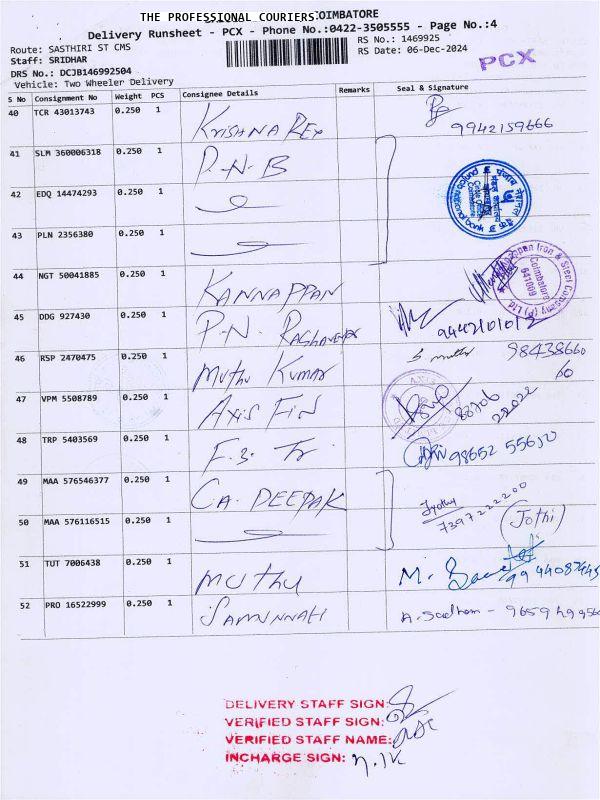 THE PROFESSIONAL COURIERS COIMBATORE
Delivery Runsheet - PCX - Phone No.:0422-3505555 - Page No.:4
Route: SASTHIRI ST CMS
RS No.: 1469925
Staff: SRIDHAR
RS Date: 06-Dec-2024
PCX
DRS No.: DCJB146992504
Vehicle: Two Wheeler Delivery
S No Consignment No Weight PCS Consignee Details Remarks Seal & Signature
40 TCR 43013743 0.250 1 KRISHNA REX 9942159666
41 SLM 360006318 0.250 1 P.N.B
42 EDQ 14474293 0.250 1
43 PLN 2356380 0.250 1
44 NGT 50041885 0.250 1 KANNAPPAN
Iron & Steel Company (P) Ltd
Coimbatore
641009
45 DDG 927430 0.250 1 P.N. 9442101012
46 RSP 2470475 0.250 1 Muthu Kumar S muthu 98438660
60
47 VPM 5508789 0.250 1 AXIS FIN 88706
22022
48 TRP 5403569 0.250 1 98652 55610
49 MAA 576546377 0.250 1 CA. DEEPAK Jyothy
7397222200
50 MAA 576116515 0.250 1 (Jothi)
51 TUT 7006438 0.250 1 muthu M.
52 PRO 16522999 0.250 1 A. Sadham -
DELIVERY STAFF SIGN:
VERIFIED STAFF SIGN:
VERIFIED STAFF NAME:
INCHARGE SIGN: